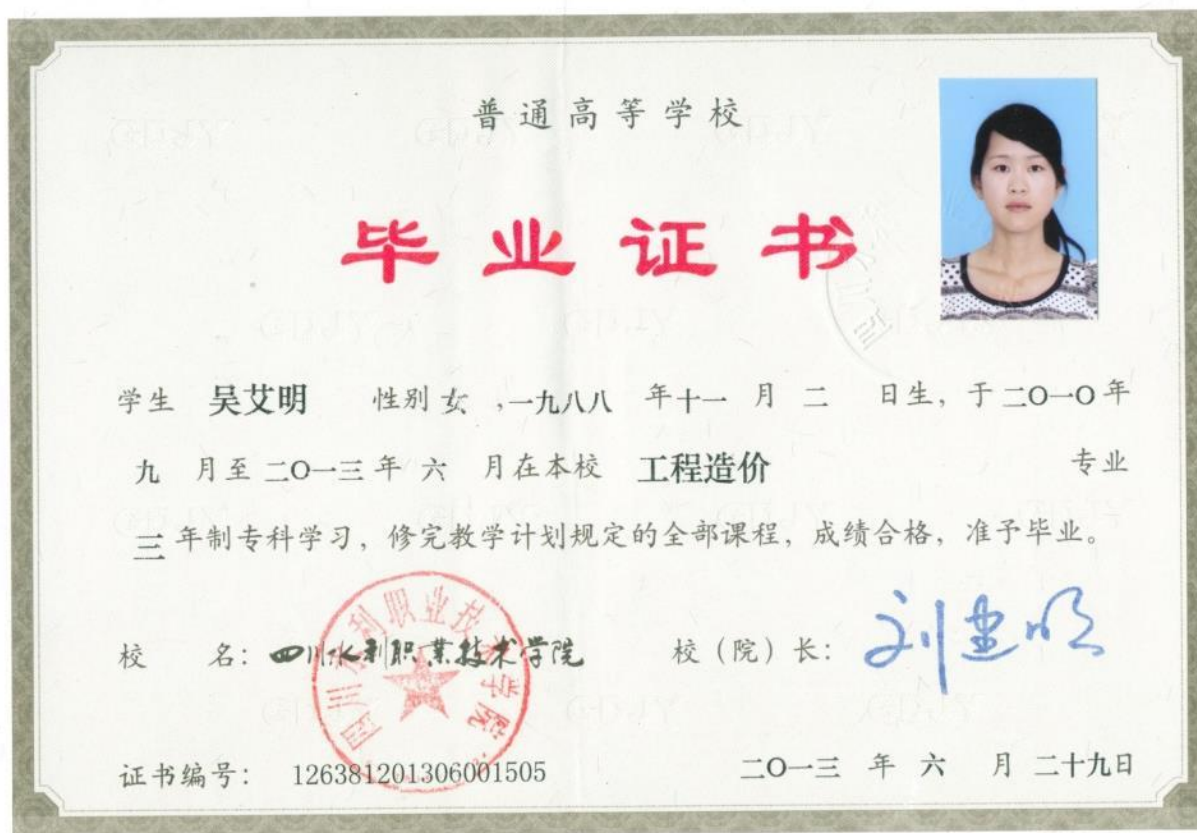 普通高等学校
毕业证书
学生 吴艾明 性别 女 ,一九八八 年 十一 月 二 日生，于 二O一O 年
九 月至 二O一三 年 六 月在本校 工程造价 专业
三 年制专科学习，修完教学计划规定的全部课程，成绩合格，准予毕业。
校 名：四川水利职业技术学院 校（院）长：刘建明
四川水利职业技术学院
证书编号： 126381201306001505 二O一三 年 六 月 二十九日